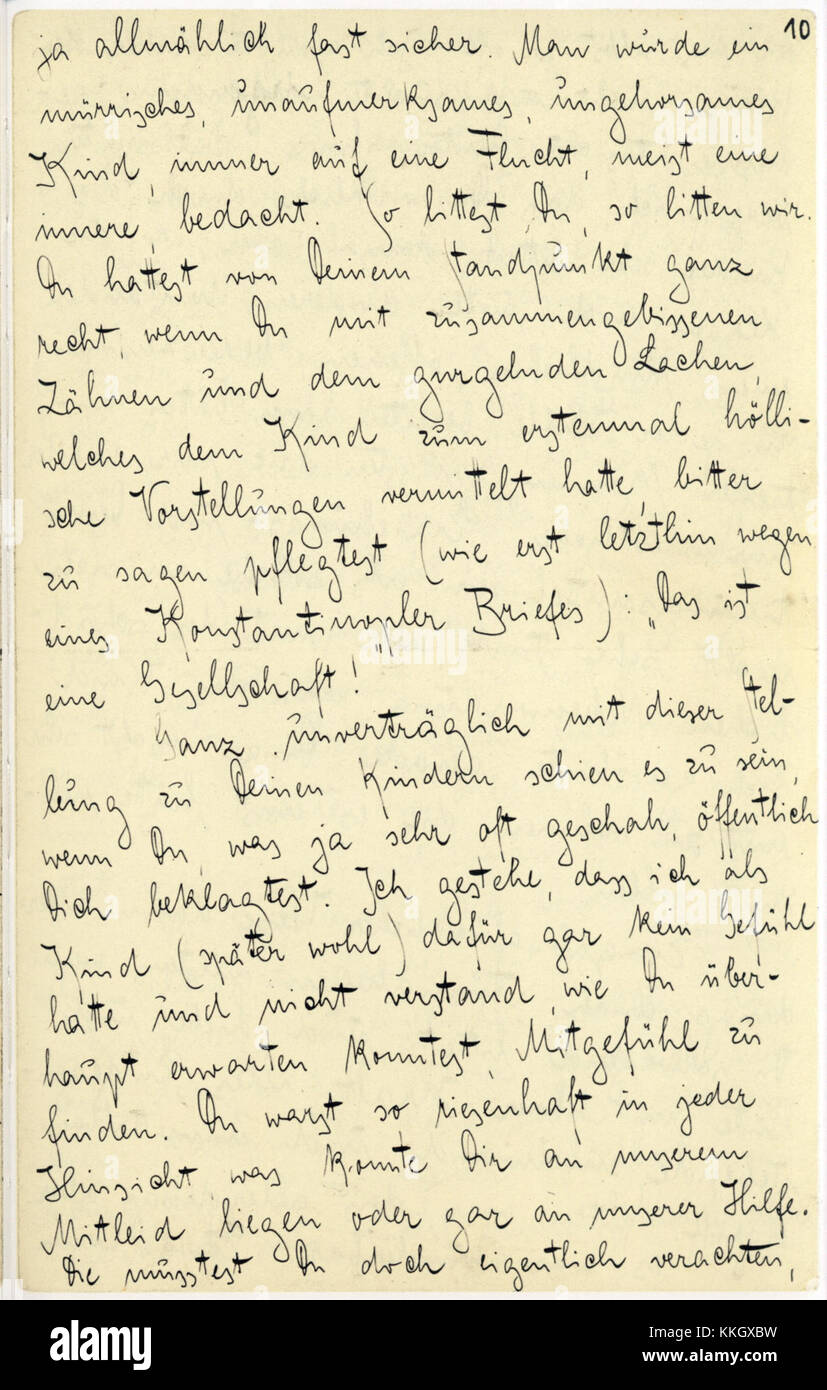 10
ja allmählich fast sicher. Man wurde ein
mürrisches, unaufmerksames, ungehorsames
Kind, immer auf eine Flucht, meist eine
innere, bedacht. So littest Du, so litten wir.
Du hattest von Deinem Standpunkt ganz
recht, wenn Du mit zusammengebissenen
Zähnen und dem gurgelnden Lachen,
welches dem Kind zum erstenmal hölli-
sche Vorstellungen vermittelt hatte, bitter
zu sagen pflegtest (wie erst letzthin wegen
eines Konstantinopler Briefes): „Das ist
eine Gesellschaft!"
Ganz unverträglich mit dieser Stel-
lung zu Deinen Kindern schien es zu sein,
wenn Du, was ja sehr oft geschah, öffentlich
Dich beklagtest. Ich gestehe, dass ich als
Kind (später wohl) dafür gar kein Gefühl
hatte und nicht verstand, wie Du über-
haupt erwarten konntest, Mitgefühl zu
finden. Du warst so riesenhaft in jeder
Hinsicht, was konnte Dir an unserem
Mitleid liegen oder gar an unserer Hilfe.
Die musstest Du doch eigentlich verachten,
alamy
Image ID: KKGXBW
www.alamy.com